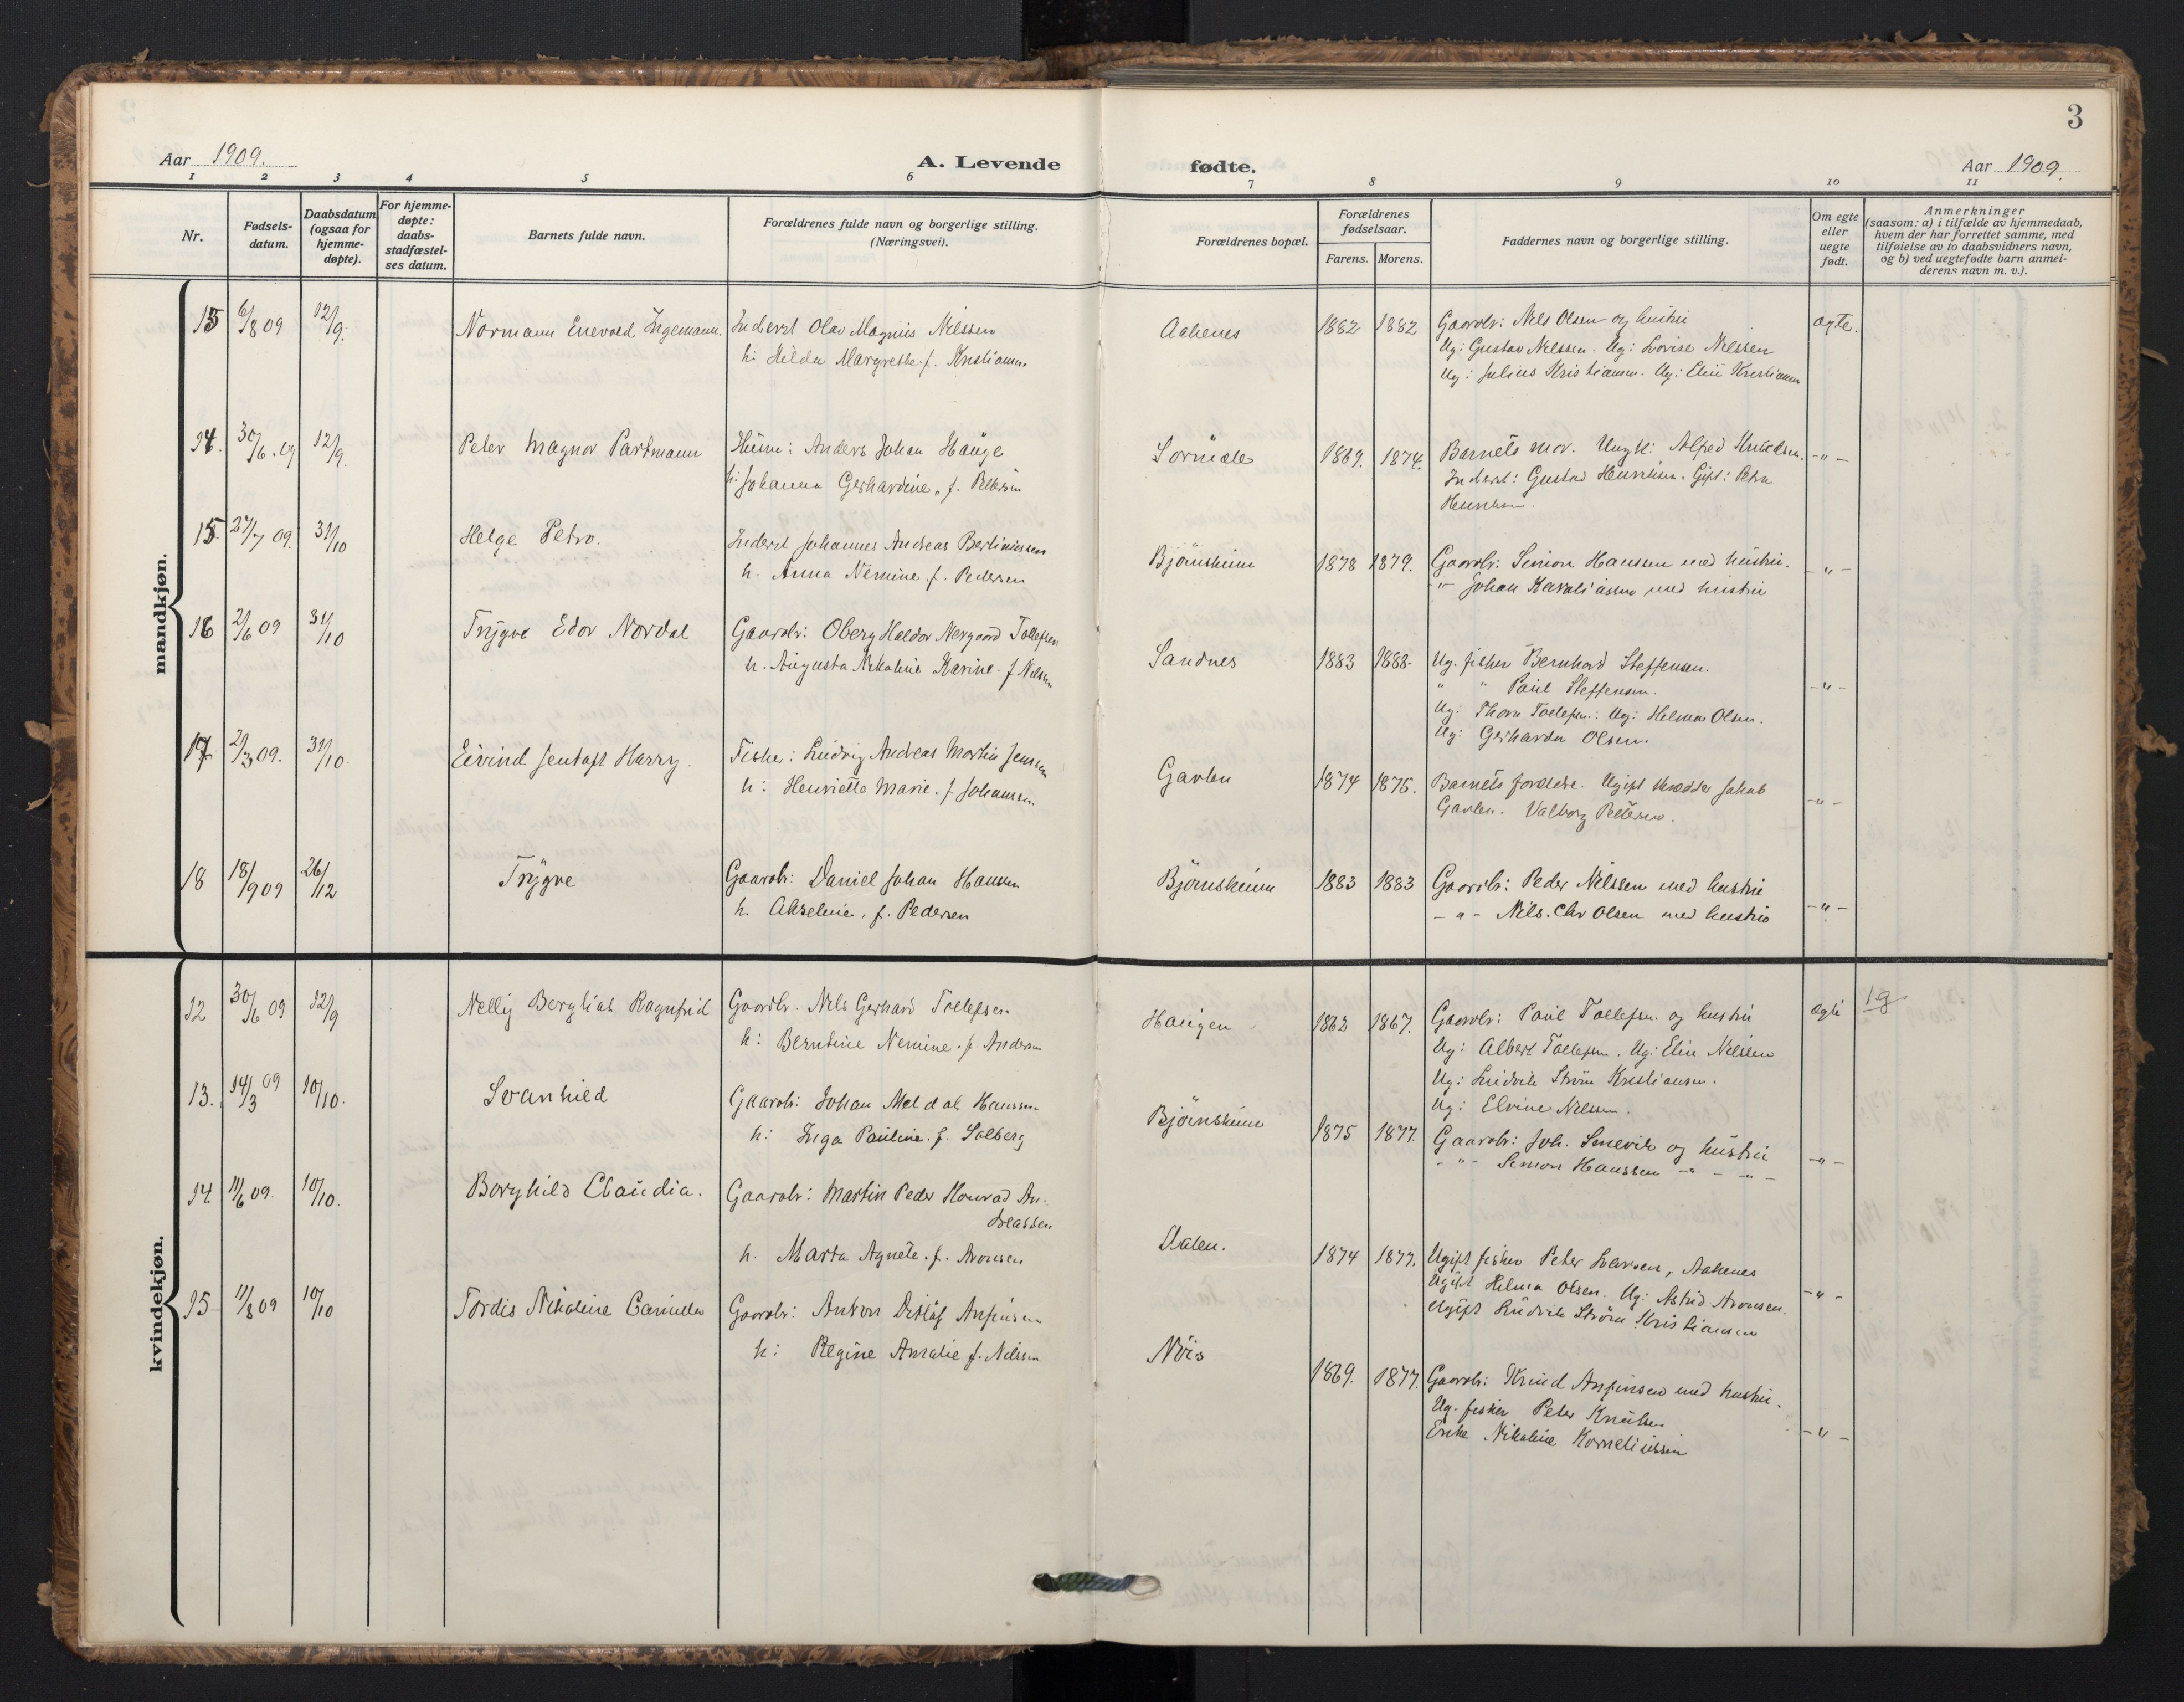 3
Aar 1909.
A. Levende
fødte.
Aar 1909.
1 2 3 4 5 6 7 8 9 10 11
Nr.
Fødsels-
datum.
Daabsdatum
(ogsaa for
hjemme-
døpte).
For hjemme-
døpte:
daabs-
stadfæstel-
ses datum.
Barnets fulde navn.
Forældrenes fulde navn og borgerlige stilling.
(Næringsvei).
Forældrenes bopæl.
Forældrenes
fødselsaar.
Farens. Morens.
Faddernes navn og borgerlige stilling.
Om egte
eller
uegte
født.
Anmerkninger
(saasom: a) i tilfælde av hjemmedaab,
hvem der har forrettet samme, med
tilføielse av to daabsvidners navn,
og b) ved uegtefødte barn anmel-
derens navn m. v.).
mandkjøn.
6/8 09 12/9. Normann Enevold Ingemann. Inderst Olav Magnus Nilssen Aakenes 1882 1882 Gaardbr: Nils Olsen og hustru ægte.
h: Hilda Margrethe f. Kristiansen
Ug: Gustav Nilssen. Ug: Lovise Nilssen
Ug: Julius Kristiansen. Ug: Elin Kristiansen
14. 30/6. 09 12/9. Peter Magnor Partmann Anders Johan Hauge 1869. 1874. Barnets mor. Alfred Knudsen. -"-
h: Johanna Gerhardine, f. Pettersen
Inderst: Gustav Henriksen. Gift: Petra
Henriksen
15. 27/7 09. 31/10 Helge Petro. Inderst Johannes Andreas Bertinussen Bjørnsheim 1878 1879. Gaardbr: Simon Hanssen med hustru. -"-
h. Anna Nemine f. Pedersen
-"- Johan med hustru
16 2/6 09 31/10 Trygve Edor Nordal Gaardbr: Oberg Haldor Nergaard Tollefsen Sandnes 1883 1888- Ug. fisker Bernhard Steffensen.
h. Augusta Nikoline Karine f. Nilssen
" " Paul Steffensen. -"-
Ug: Thora Tollefsen: Ug: Helma Olsen.
Ug: Gerharda Olsen.
17 2/3 09. 31/10 Eivind Jentoft Harry. Fisker: Ludvig Andreas Martin Jenssen Gavlen 1874 1875. Barnets forældre. Ugift Jakob
h: Henriette Marie. f. Johansen.
Gavlen. Valborg Pettersen. -"-
18 18/9 09 26/12 Trygve Gaardbr: Daniel Johan Hansen Bjørnsheim 1883 1883 Gaardbr: Peder Nilssen med hustru
h. Akseline, f. Pedersen
-"- Nils. Chr Olsen med hustru -"-
kvindekjøn.
12 30/6 09 12/9 Nelly Bergliot Ragnfrid Gaardbr. Nils Gerhard Tollefsen Haugen 1862 1867. Gaardbr: Paul Tollefsen og hustru ægte 19
h: Berntine Nemine. f. Andersen
Ug: Albert Tollefsen. Ug: Elin Nilssen
Ug: Ludvik Strøm Kristiansen.
Ug: Elvine Nilssen.
13. 14/3 09 10/10. Svanhild Gaardbr: Johan Meldal Hanssen Bjørnsheim 1875 1877. Gaardbr: Joh. og hustru -"-
h: Inga Pauline. f. Solberg
-"- Simon Hanssen -"- -"-
14 11/6 09. 10/10. Borghild Claudia. Gaardbr: Martin Peder Konrad An-
dreassen
h. Marta Agnete. f. Aronsen
Dalen. 1874 1877. Ugift fisker Peter Larsen, Aakenes
Ugift Helma Olsen. Ug: Astrid Aronsen. -"-
Ugift Ludvik Strøm Kristiansen
15 11/8 09 10/10 Tordis Nikoline Camilla Gaardbr: Anton Ditlef Anfinsen Nöis 1869. 1877. Gaardbr: Knud Anfinsen med hustru.
h: Regine Amalie f. Nilssen
Ug. fisker Peter Knutsen
Enke Nikoline Korneliussen -"-